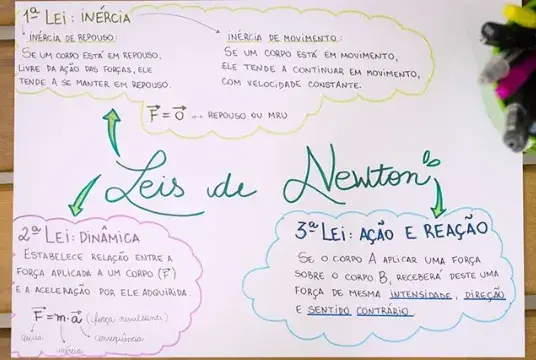 1ª LEI: INÉRCIA
INÉRCIA DE REPOUSO:
SE UM CORPO ESTÁ EM REPOUSO,
LIVRE DA AÇÃO DAS FORÇAS, ELE
TENDE A SE MANTER EM REPOUSO.
INÉRCIA DE MOVIMENTO:
SE UM CORPO ESTÁ EM MOVIMENTO,
ELE TENDE A CONTINUAR EM MOVIMENTO,
COM VELOCIDADE CONSTANTE.
F⃗ = 0⃗ → REPOUSO OU MRU
Leis de Newton
2ª LEI: DINÂMICA
ESTABELECE RELAÇÃO ENTRE A
FORÇA APLICADA A UM CORPO (F⃗)
E A ACELERAÇÃO POR ELE ADQUIRIDA.
F⃗ = m·a⃗ (força resultante)
causa
inércia
consequência
3ª LEI: AÇÃO E REAÇÃO
SE O CORPO A APLICAR UMA FORÇA
SOBRE O CORPO B, RECEBERÁ DESTE UMA
FORÇA DE MESMA INTENSIDADE, DIREÇÃO
E SENTIDO CONTRÁRIO